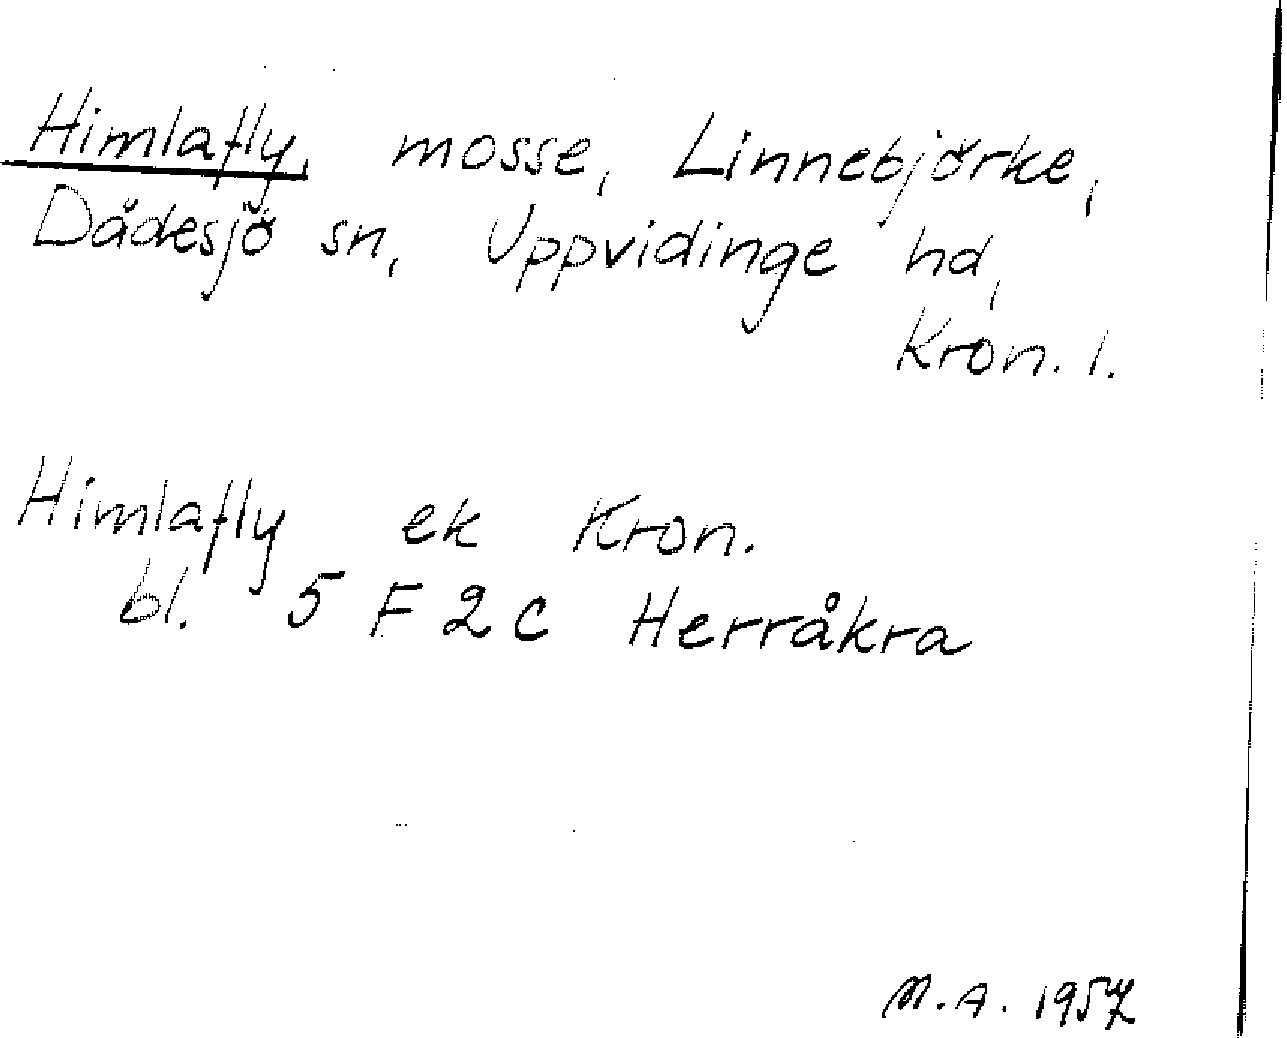 Himlafly, mosse, Linnebjörke,
Dädesjö sn, Uppvidinge hd,
Kron. l.
Himlafly ek Kron.
bl. 5 F 2 c Herråkra
M.A. 1957